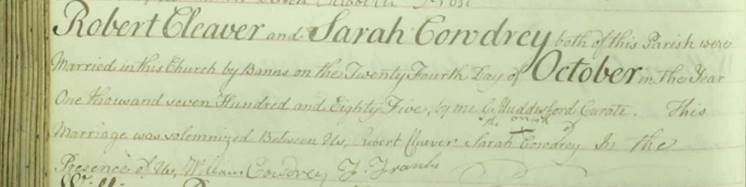 Robert Cleaver and Sarah Cowdrey both of this Parish were
Married in this Church by Banns on the Twenty Fourth Day of October in The Year
One thousand seven Hundred and Eighty Five, by me G. Huddesford Curate. This
Marriage was solemnized Between Us, Robert Cleaver Sarah Cowdrey In the
Presence of Us, William Cowdrey